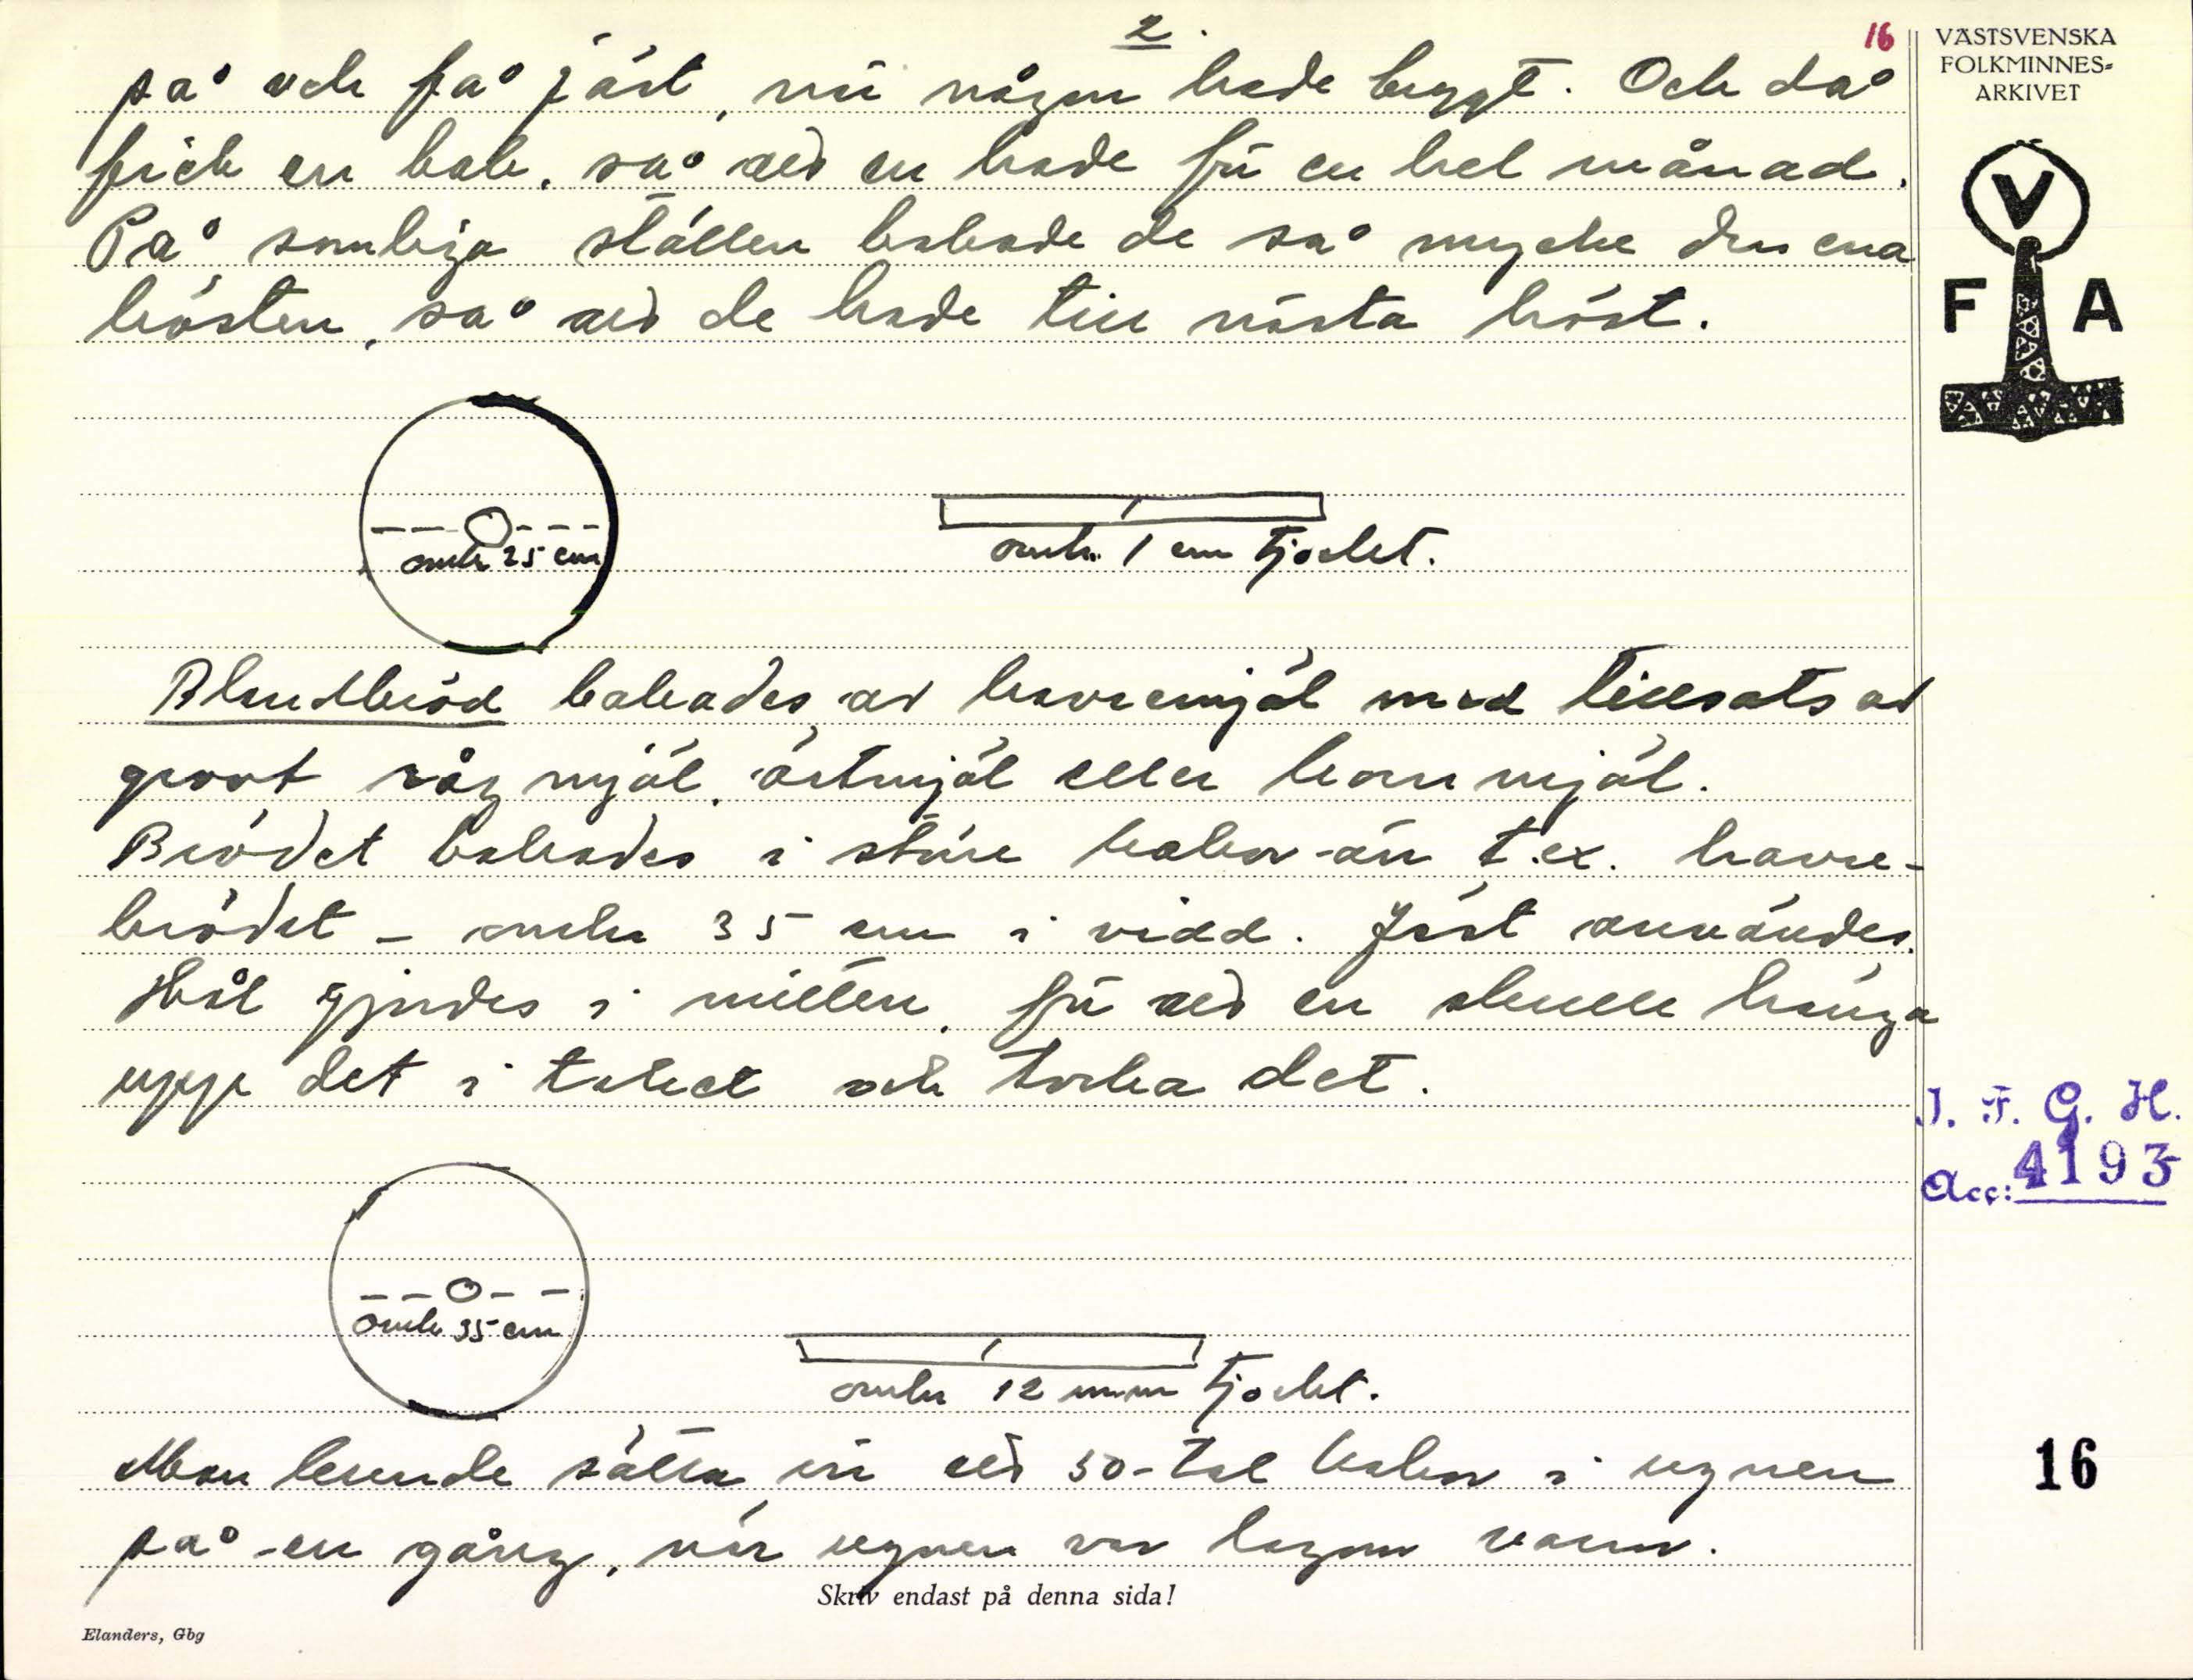 2.
16
på och få jäst, när någon hade bryggt. Och då
fick en baka, så att en hade för en hel månad.
På somliga ställen bakade de så mycke den ena
hösten, så att de hade till nästa höst.
omkr 25 cm
omkr. 1 cm tjockt.
Blandbröd bakades av havremjöl med tillsats av
grovt rågmjöl, ärtmjöl eller kornmjöl.
Brödet bakades i större kakor än t.ex. havre-
brödet – omkr 35 cm i vidd. Jäst användes.
Hål gjordes i mitten, för att en skulle hänga
upp det i taket och torka det.
omkr 35 cm
omkr 12 mm tjockt.
Man kunde sätta in ett 30-tal kakor i ugnen
på en gång, när ugnen var lagom varm.
Skriv endast på denna sida!
Elanders, Gbg
VÄSTSVENSKA
FOLKMINNES-
ARKIVET
V
F A
I. F. G. H.
Acc: 4193
16